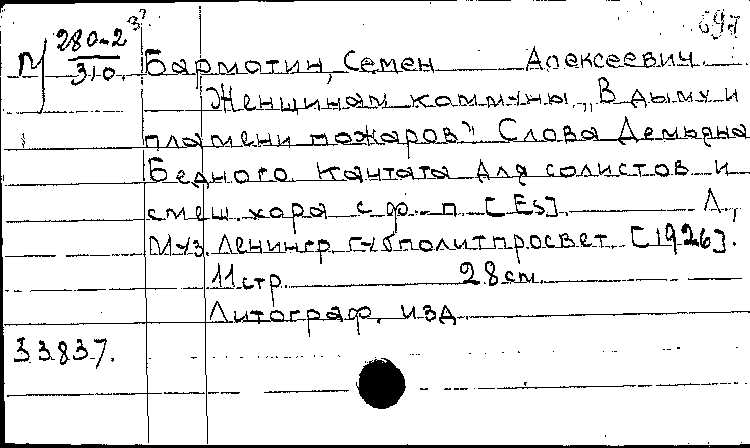 697
П/ 280-2 3?
310.
Бармотин, Семен Алексеевич.
Женщинам коммуны „В дыму и
пламени пожаров" Слова Демьяна
Бедного. Кантата для солистов и
смеш. хора с ф.-п. [Es]. Л.,
Муз. Ленингр. губполитпросвет. [1926].
11 стр. 28 см.
Литограф. изд
33837.